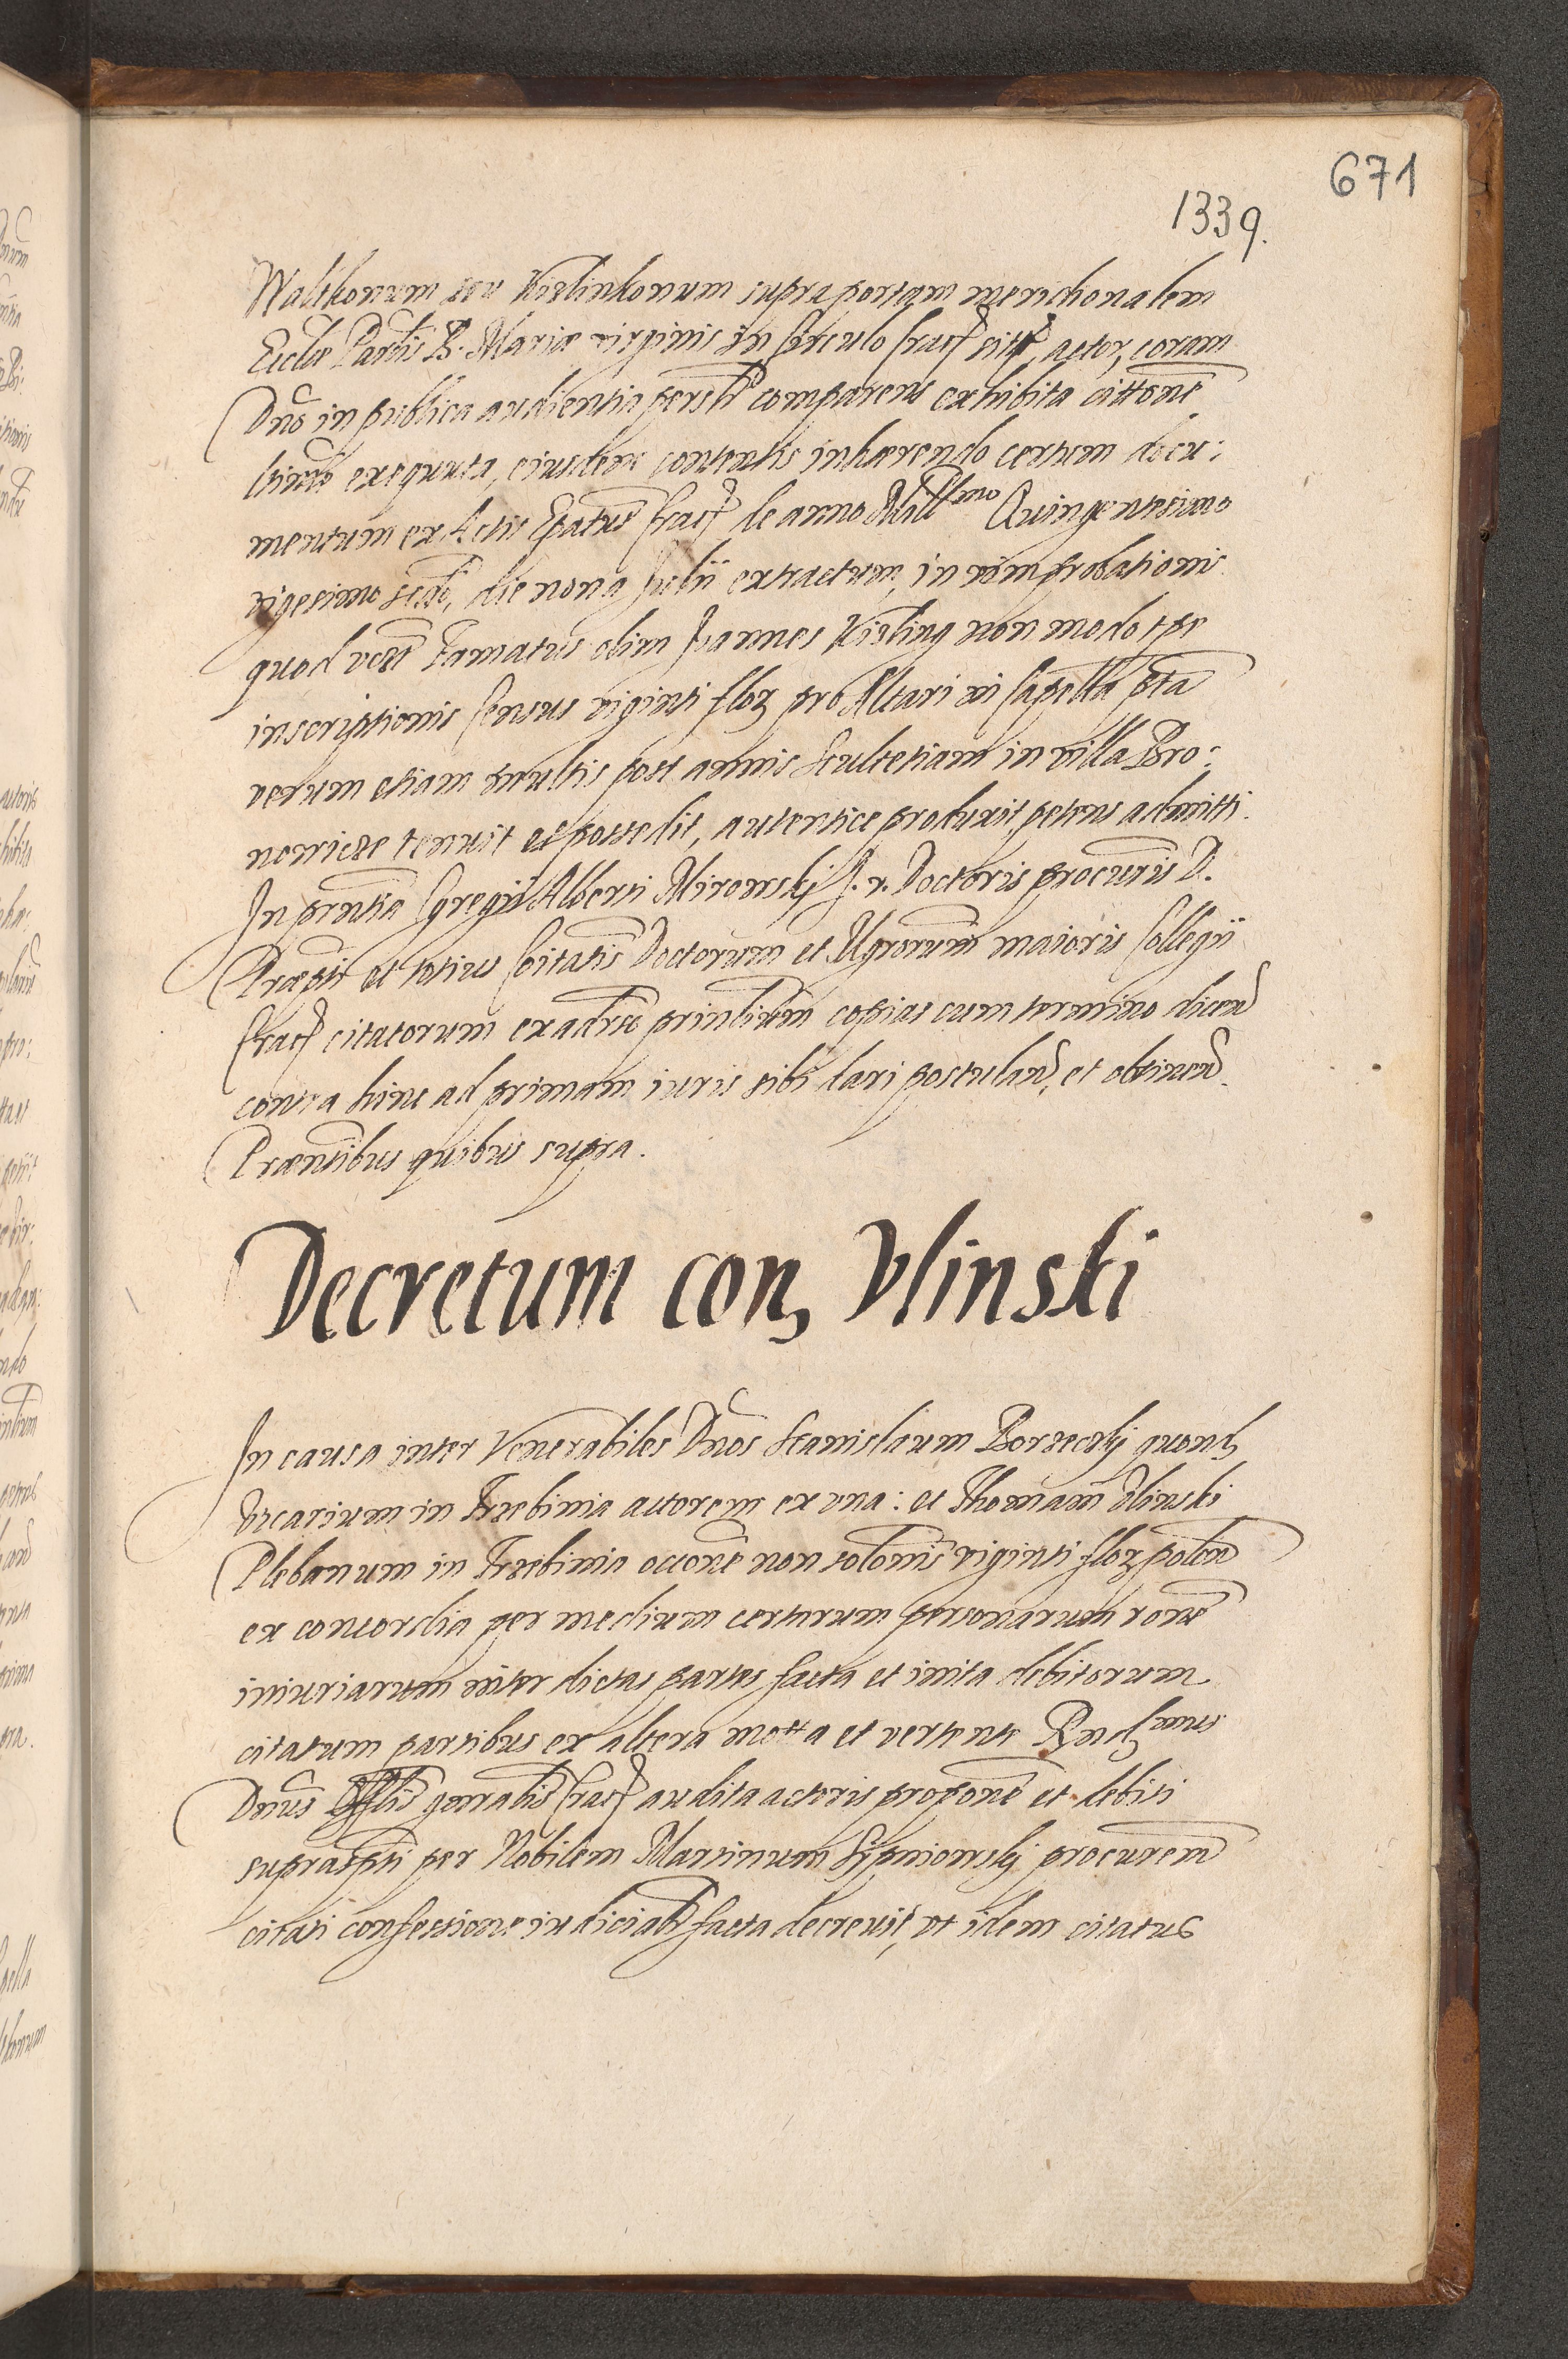 671
1339.
Walthonum seu Kislinkonum supra portam meridionalem
Eccliæ Parlis B. Mariæ virginis in Circulo Crac sit, actor, coram
Dno in publica audientia comparens exhibita cittone
exequuta, eiusdem contentis inhærendo certum docu:
mentum ex Actis Epatus Crac de anno Mill simo Quingentesimo
vigesimo scdo, die nona Julii extractum, in vim probationis
quod Famatus olim Joannes Kisling non modo tpe
inscriptionis Census viginti flor pro Altari in Capella pta
verum etiam multis post annis Scultetiam in villa Bro:
nowicze tenuit et possedit, autentice produxit, petens admitti.
In prntia Egregii Alberti Mirowskj J. v. Doctoris procuris D.
Præpti et totius Coitatis Doctorum et Mgrorum maioris Collegii
Crac citatorum ex adverso copias cum termino dicen
contra hinc ad primam iuris sibi dari postulan, et obtinen.
Præntibus quibus supra.
Decretum con, Vlinski
In causa inter Venerabiles Dnos Stanislaum Borzeczkj quond
vicarium in Trzebinia actorem ex vna: et Thomam Vlinski
Plebanum in Trzebinia occone non solonis viginti flor polon
ex concordia per medium certarum personarum rone
iniuriarum inter dictas partes facta et inita debitorum
citatum partibus ex altera motta et vertente Rnd mus
Dnus Offlis gnralis Crac audita actoris propone et debiti
suprascpti per Nobilem Martinum Lipniowskj procurem
citati confessione iudicialr facta decrevit, vt idem citatus